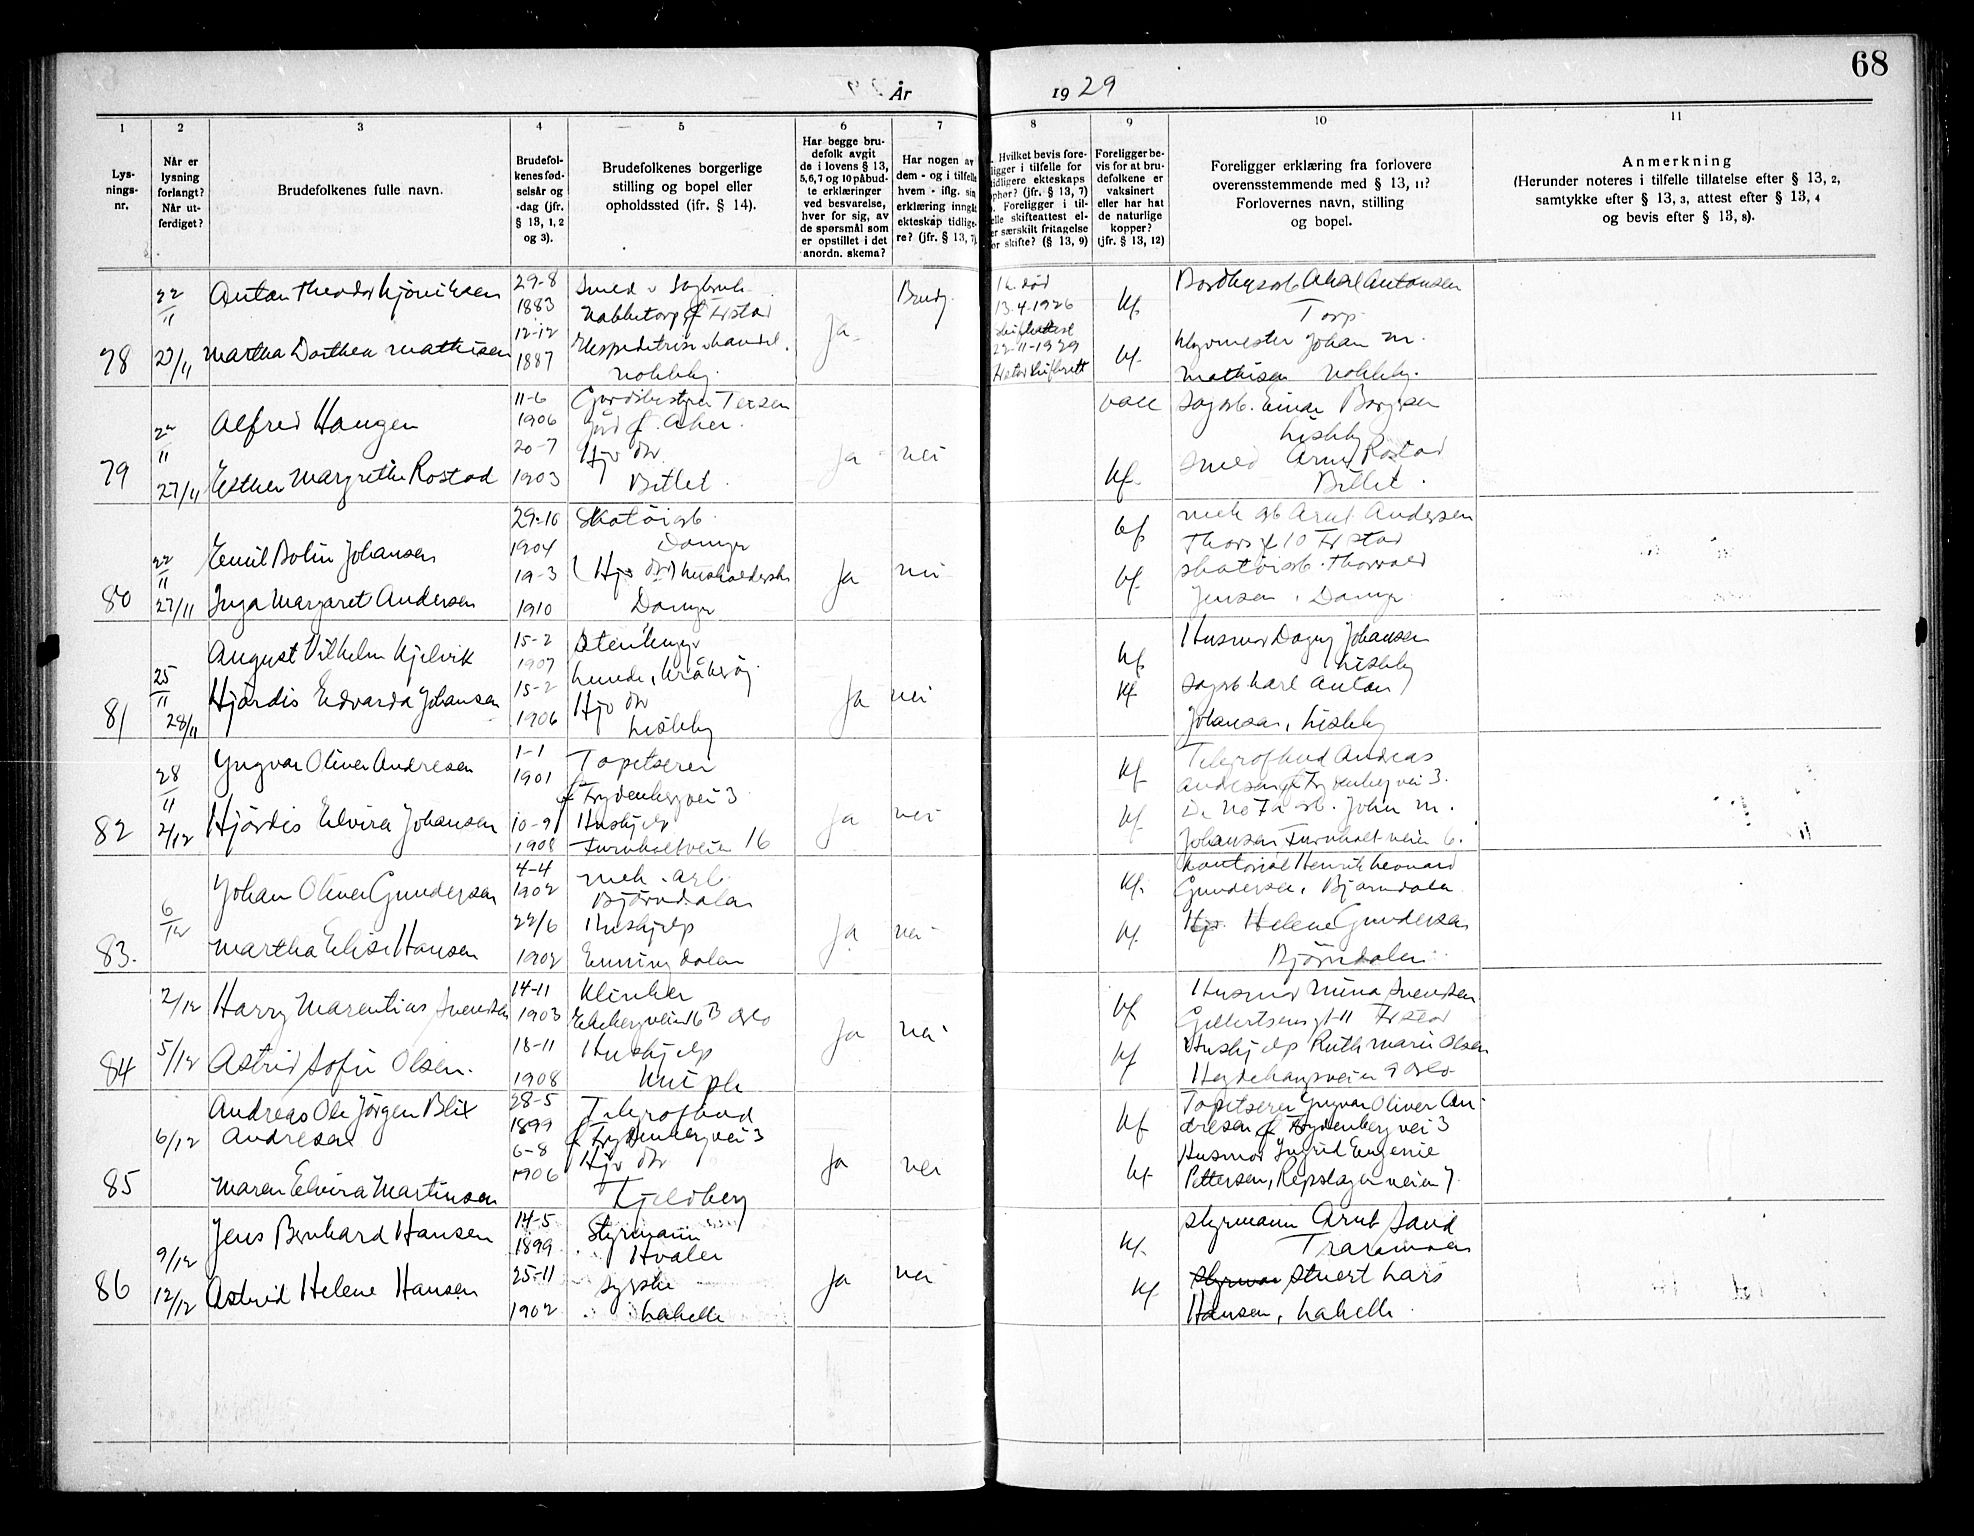 68
År 1929
1 2 3 4 5 6 7 8 9 10 11
Lys-
nings-
nr.
Når er
lysning
forlangt?
Når ut-
ferdiget?
Brudefolkenes fulle navn.
Brudefol-
kenes fød-
selsår og
-dag (jfr.
§ 13, 1, 2
og 3).
Brudefolkenes borgerlige
stilling og bopel eller
opholdssted (ifr. § 14).
Har begge bru-
defolk avgit
de i lovens § 13,
5,6,7 og 10 påbud-
te erklæringer
ved besvarelse,
hver for sig, av
de spørsmål som
er opstillet i det
anordn. skema?
Har nogen av
dem - og i tilfelle
hvem - iflg. sin
erklæring inngåt
ekteskap tidlige-
re? (jfr. § 13, 7)
Hvilket bevis fore-
ligger i tilfelle for
tidligere ekteskaps
ophør? (jfr. § 13, 7)
Foreligger i til-
felle skifteattest el-
er særskilt fritagelse
or skifte? (§ 13, 9)
Foreligger be-
vis for at bru-
defolkene er
vaksinert
eller har hat
de naturlige
kopper?
(jfr. § 13, 12)
Foreligger erklæring fra forlovere
overensstemmende med § 13, 11?
Forlovernes navn, stilling
og bopel.
Anmerkning
(Herunder noteres i tilfelle tillatelse efter § 13, 2,
samtykke efter § 13, 3, attest efter § 13, 4
og bevis efter § 13, 8).
78
22/11
27/11
Anton Theodor
Martha Dorthea Mathisen
29-8
1883
12-12
1887
Smed
Ja
Brudg.
13-4-1926
22-11-1929
Kf.
Kf.
Axel Antonsen
Torp
Johan M.
Mathisen
79
22/11
27/11
Alfred Haugen
Esther Margrethe Rostad
11-6
1906
20-7
1903
Aker.
Hjv dtr
Billet
Ja nei
vacc
Kf.
Borgesen
Lisleby
Smed Rostad
Billet.
80
22/11
27/11
Emil Bolin Johansen
Inga Margaret Andersen
29-10
1904
19-3
1910
Skotøiarb.
(Hjv dtr)
Ja nei
Kf
Kf.
mek arb Arnt Andersen
skotøiarb. Thorvald
Jensen.
81
25/11
28/11
August Vilhelm Kjølvik
Hjørdis Edvarda Johansen
15-2
1907
15-2
1906
Stenhugger
Lunde, Kråkerøy.
Hjv dtr
Lisleby
Ja nei
Kf
Kf
Husmor Dagny Johansen
Lisleby
Sagarb Karl Anton
Johansen, Lisleby
82
28/11
2/12
Yngvar Oliver Andresen
Hjørdis Elvira Johansen
1-1
1901
10-9
1908
Tapetserer
Frydenbergvei 3
Hushjelp
Furuholtveien 16
Ja nei
Kf.
Kf.
Telegrafbud Andreas
Andresen Frydenbergvei 3.
John M.
Johansen Furuholtveien 6.
83.
6/12
Johan Oliver Gundersen
Martha Elise Hansen
4-4
1902
22/6
1902
mek. arb.
Bjørndalen
Hushjelp
Enningdalen
Ja nei
Kf.
Kf.
Henrik Leonard
Gundersen, Bjørndalen
Helene Gundersen
Bjørndalen
84
2/12
5/12
Harry Marentius Svendsen
Astrid Sofie Olsen.
14-11
1903
18-11
1908
Klinker
Ekebergveien 16 B Oslo
Hushjelp
Kniple
Ja nei
Kf
Kf
Husmor Mina Svendsen
Gilbertsens gt 11 Frstad
Hushjelp Ruth Marie Olsen
9 Oslo
85
6/12
Andreas Ole Jörgen Blix
Andresen
Maren Elvira Martinsen
28-5
1899
6-8
1906
Telegrafbud
Frydenbergvei 3
Hjv dtr
Kjeldberg
Ja nei
Kf
Kf
Tapetserer Yngvar Oliver An-
dresen Frydenbergvei 3
Husmor Ingrid Eugenie
Pettersen, Repslagerveien 7.
86
9/12
12/12
Jens Bernhard Hansen
Astrid Helene Hansen
14-5
1899
25-11
1902
Styrmann
Hvaler
Syerske
Lahelle
Ja nei
Kf.
Kf
Styrmann Arnt Sand
Stuert Lars
Hansen, Lahelle.